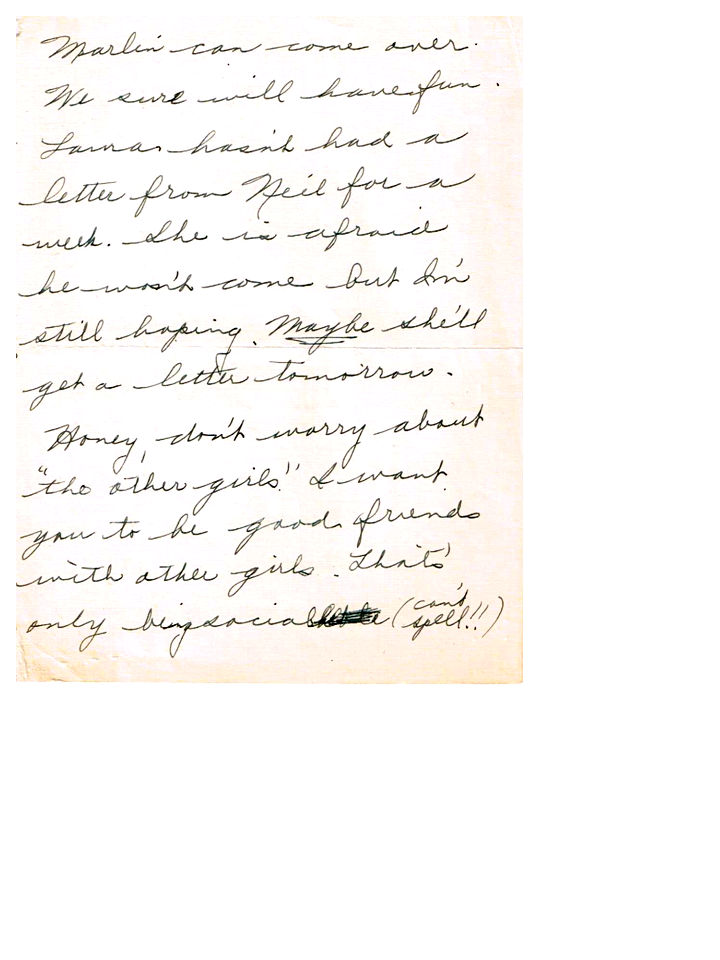 Marlin can come over.
We sure will have fun.
Lorna hasn't had a
letter from Neil for a
week. She is afraid
he won't come but I'm
still hoping. Maybe she'll
get a letter tomorrow.
Honey, don't worry about
"the other girls." I want
you to be good friends
with other girls. That's
only being social (can't
spell!!)